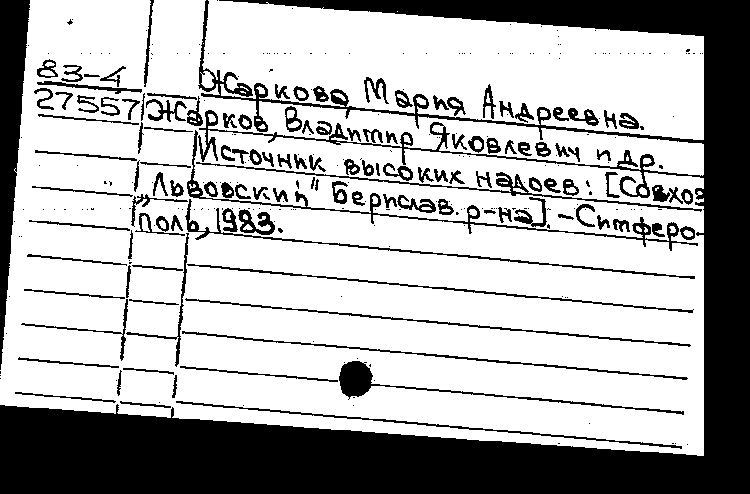 83-4 Жаркова, Мария Андреевна.
27557 Жарков, Владимир Яковлевич и др.
Источник высоких надоев: [Совхоз
„Львовский" Берислав. р-на]. -Симферо-
поль, 1983.